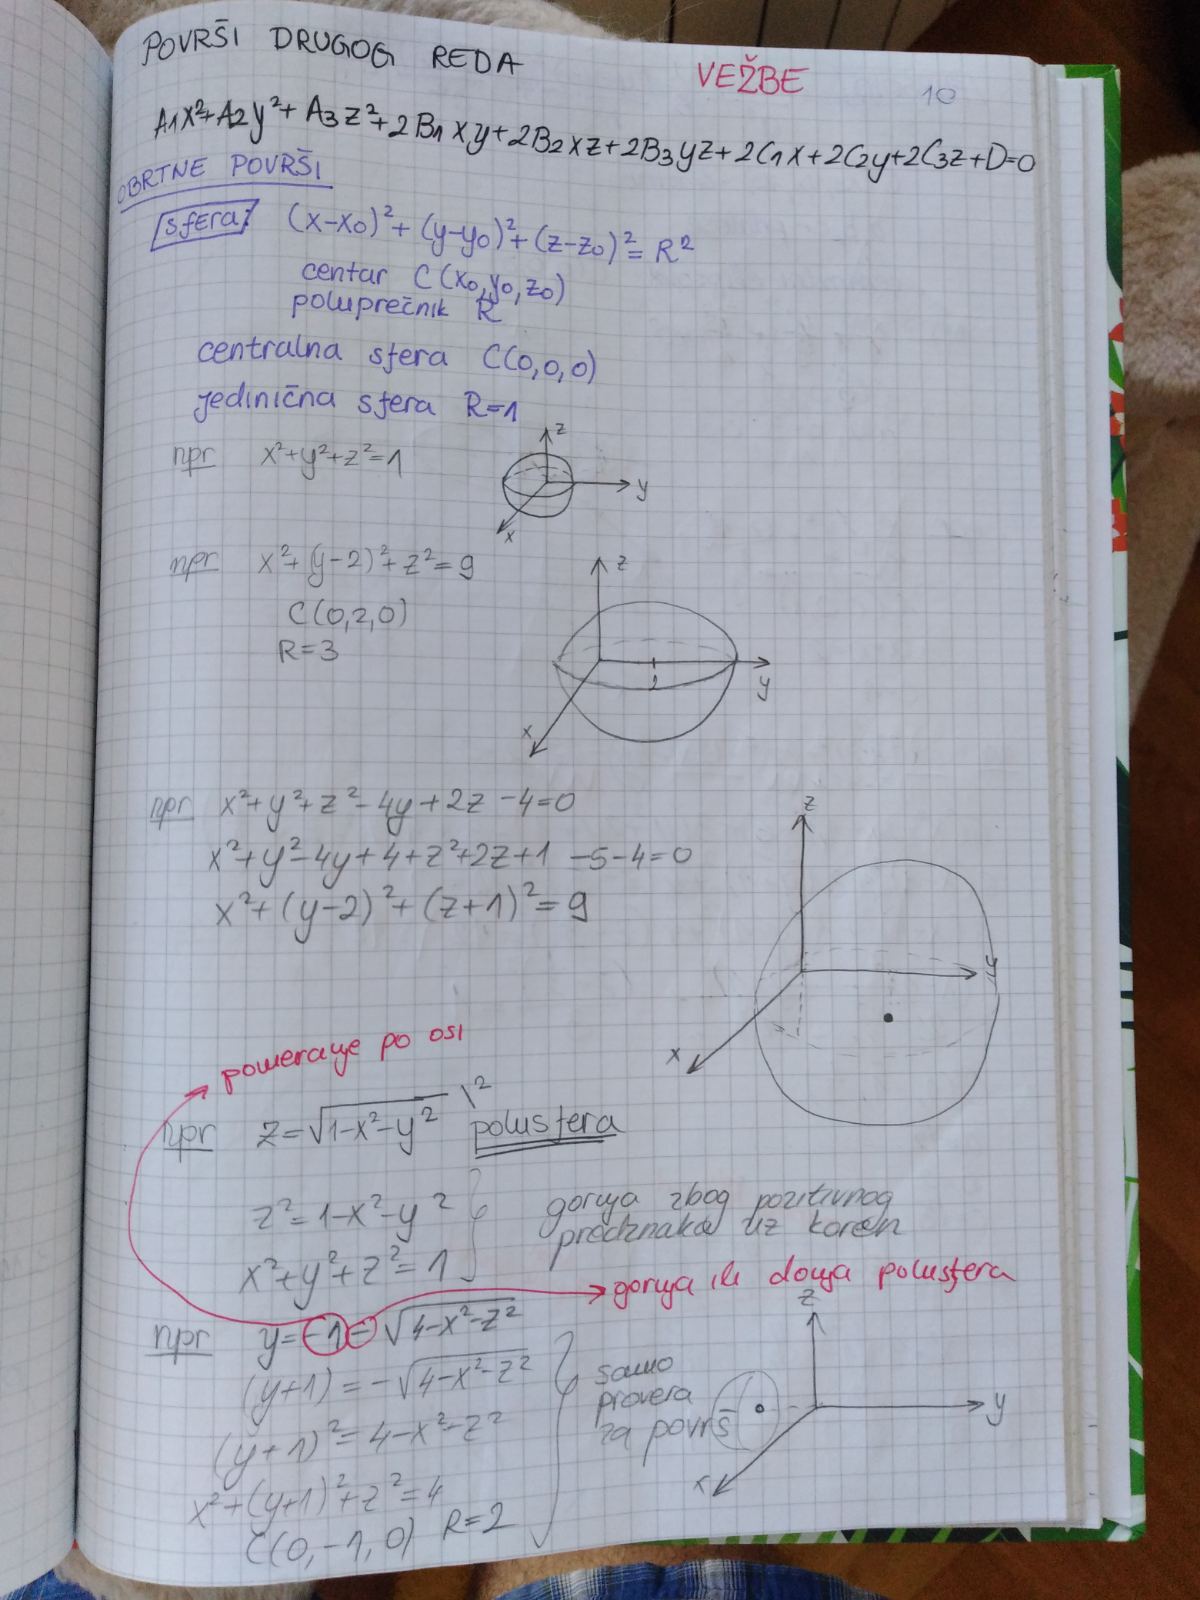 POVRŠI DRUGOG REDA
VEŽBE
10
A1x²+A2y²+A3z²+2B1xy+2B2xz+2B3yz+2C1x+2C2y+2C3z+D=0
OBRTNE POVRŠI
sfera: (x-x0)²+(y-y0)²+(z-z0)²=R²
centar C(x0,y0,z0)
poluprečnik R
centralna sfera C(0,0,0)
jedinična sfera R=1
npr x²+y²+z²=1
z
y
x
npr x²+(y-2)²+z²=9
C(0,2,0)
R=3
z
2
y
x
npr x²+y²+z²-4y+2z-4=0
x²+y²-4y+4+z²+2z+1-5-4=0
x²+(y-2)²+(z+1)²=9
z
y
x
pomeranje po osi
npr z=√1-x²-y² \² polusfera
z²=1-x²-y²
x²+y²+z²=1
gornja zbog pozitivnog
predznaka uz koren
gornja ili donja polusfera
npr y=-1-√4-x²-z²
(y+1)=-√4-x²-z²
(y+1)²=4-x²-z²
x²+(y+1)²+z²=4
C(0,-1,0) R=2
samo
provera
za površ
z
y
x